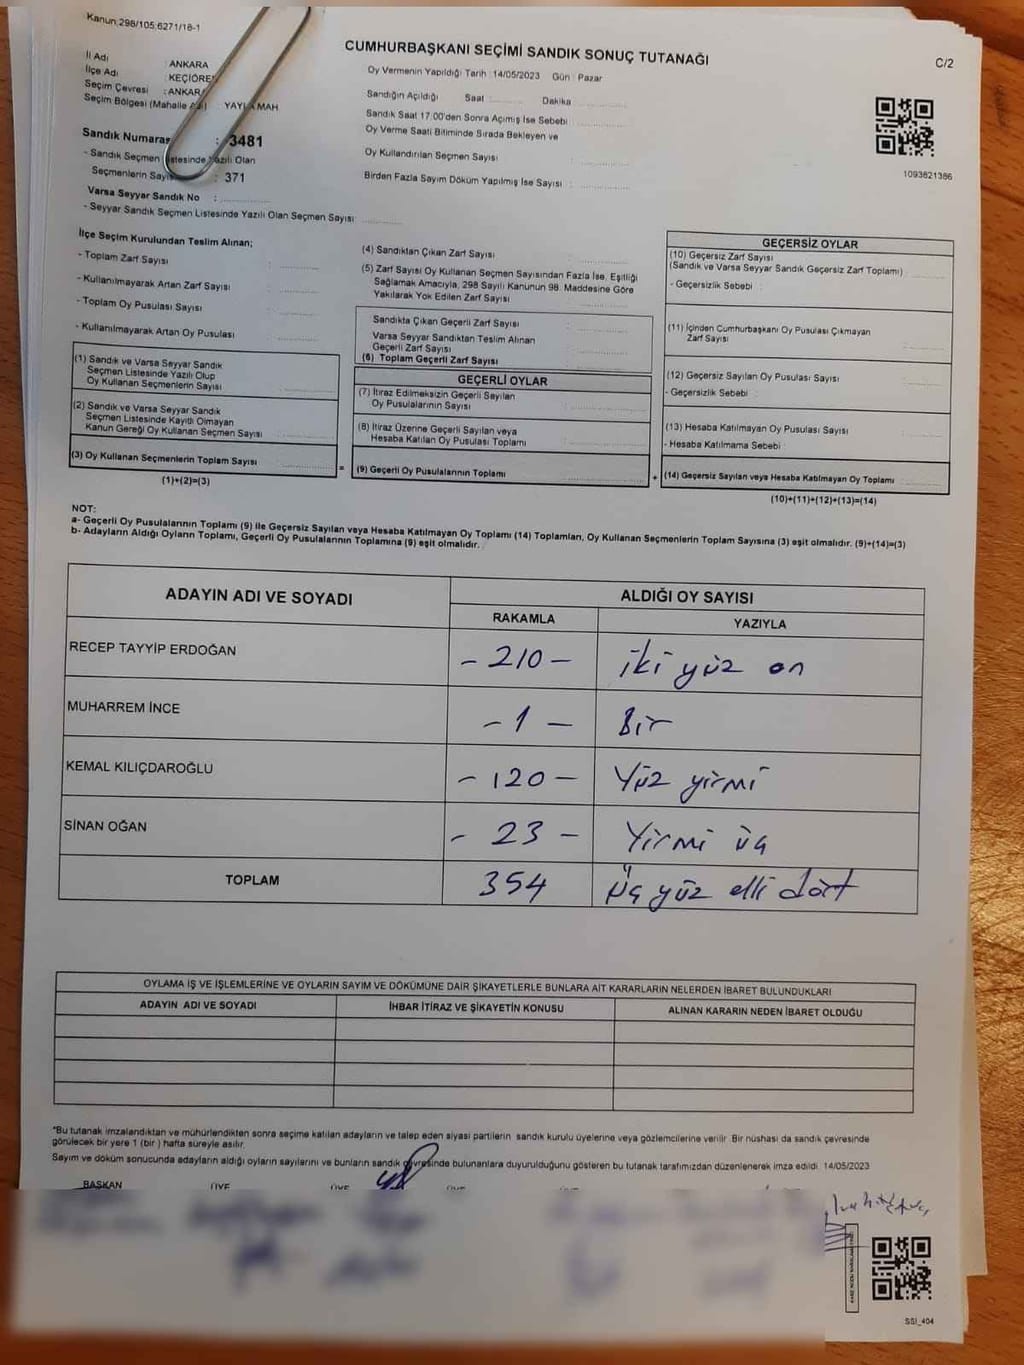 Kanun:298/105,6271/18-1
CUMHURBAŞKANI SEÇİMİ SANDIK SONUÇ TUTANAĞI
C/2
İl Adı : ANKARA
İlçe Adı : KEÇİÖREN
Seçim Çevresi : ANKARA
Seçim Bölgesi (Mahalle Adı) : YAYLA MAH
Oy Vermenin Yapıldığı Tarih :14/05/2023 Gün : Pazar
Sandığın Açıldığı Saat Dakika
Sandık Saat 17:00'den Sonra Açımış İse Sebebi :
Oy Verme Saati Bitiminde Sırada Bekleyen ve
Oy Kullandırılan Seçmen Sayısı :
Birden Fazla Sayım Döküm Yapılmış İse Sayısı :
1093621386
Sandık Numarası : 3481
- Sandık Seçmen Listesinde Yazılı Olan
Seçmenlerin Sayısı : 371
Varsa Seyyar Sandık No :
- Seyyar Sandık Seçmen Listesinde Yazılı Olan Seçmen Sayısı :
İlçe Seçim Kurulundan Teslim Alınan;
- Toplam Zarf Sayısı :
- Kullanılmayarak Artan Zarf Sayısı :
- Toplam Oy Pusulası Sayısı :
- Kullanılmayarak Artan Oy Pusulası :
(1) Sandık ve Varsa Seyyar Sandık
Seçmen Listesinde Yazılı Olup
Oy Kullanan Seçmenlerin Sayısı
(2) Sandık ve Varsa Seyyar Sandık
Seçmen Listesinde Kayıtlı Olmayan
Kanun Gereği Oy Kullanan Seçmen Sayısı
(3) Oy Kullanan Seçmenlerin Toplam Sayısı
(1)+(2)=(3)
(4) Sandıktan Çıkan Zarf Sayısı :
(5) Zarf Sayısı Oy Kullanan Seçmen Sayısından Fazla İse, Eşitliği
Sağlamak Amacıyla, 298 Sayılı Kanunun 98. Maddesine Göre
Yakılarak Yok Edilen Zarf Sayısı :
Sandıkta Çıkan Geçerli Zarf Sayısı :
Varsa Seyyar Sandıktan Teslim Alınan
Geçerli Zarf Sayısı :
(6) Toplam Geçerli Zarf Sayısı :
GEÇERLİ OYLAR
(7) İtiraz Edilmeksizin Geçerli Sayılan
Oy Pusulalarının Sayısı :
(8) İtiraz Üzerine Geçerli Sayılan veya
Hesaba Katılan Oy Pusulası Toplamı :
= (9) Geçerli Oy Pusulalarının Toplamı
GEÇERSİZ OYLAR
(10) Geçersiz Zarf Sayısı
(Sandık ve Varsa Seyyar Sandık Geçersiz Zarf Toplamı) :
- Geçersizlik Sebebi :
(11) İçinden Cumhurbaşkanı Oy Pusulası Çıkmayan
Zarf Sayısı :
(12) Geçersiz Sayılan Oy Pusulası Sayısı :
- Geçersizlik Sebebi :
(13) Hesaba Katılmayan Oy Pusulası Sayısı :
- Hesaba Katılmama Sebebi :
+ (14) Geçersiz Sayılan veya Hesaba Katılmayan Oy Toplamı
(10)+(11)+(12)+(13)=(14)
NOT:
a- Geçerli Oy Pusulalarının Toplamı (9) ile Geçersiz Sayılan veya Hesaba Katılmayan Oy Toplamı (14) Toplamları, Oy Kullanan Seçmenlerin Toplam Sayısına (3) eşit olmalıdır. (9)+(14)=(3)
b- Adayların Aldığı Oyların Toplamı, Geçerli Oy Pusulalarının Toplamına (9) eşit olmalıdır.
ADAYIN ADI VE SOYADI
ALDIĞI OY SAYISI
RAKAMLA
YAZIYLA
RECEP TAYYİP ERDOĞAN - 210 - iki yüz on
MUHARREM İNCE - 1 - Bir
KEMAL KILIÇDAROĞLU - 120 - Yüz yirmi
SİNAN OĞAN - 23 - Yirmi üç
TOPLAM 354 üç yüz elli dört
OYLAMA İŞ VE İŞLEMLERİNE VE OYLARIN SAYIM VE DÖKÜMÜNE DAİR ŞİKAYETLERLE BUNLARA AİT KARARLARIN NELERDEN İBARET BULUNDUKLARI
ADAYIN ADI VE SOYADI
İHBAR İTİRAZ VE ŞİKAYETİN KONUSU
ALINAN KARARIN NEDEN İBARET OLDUĞU
*Bu tutanak imzalandıktan ve mühürlendikten sonra seçime katılan adayların ve talep eden siyasi partilerin sandık kurulu üyelerine veya gözlemcilerine verilir. Bir nüshası da sandık çevresinde
görülecek bir yere 1 (bir) hafta süreyle asılır.
Sayım ve döküm sonucunda adayların aldığı oyların sayılarını ve bunların sandık çevresinde bulunanlara duyurulduğunu gösteren bu tutanak tarafımızdan düzenlenerek imza edildi. 14/05/2023
BAŞKAN ÜYE ÜYE ÜYE ÜYE
SSI_404